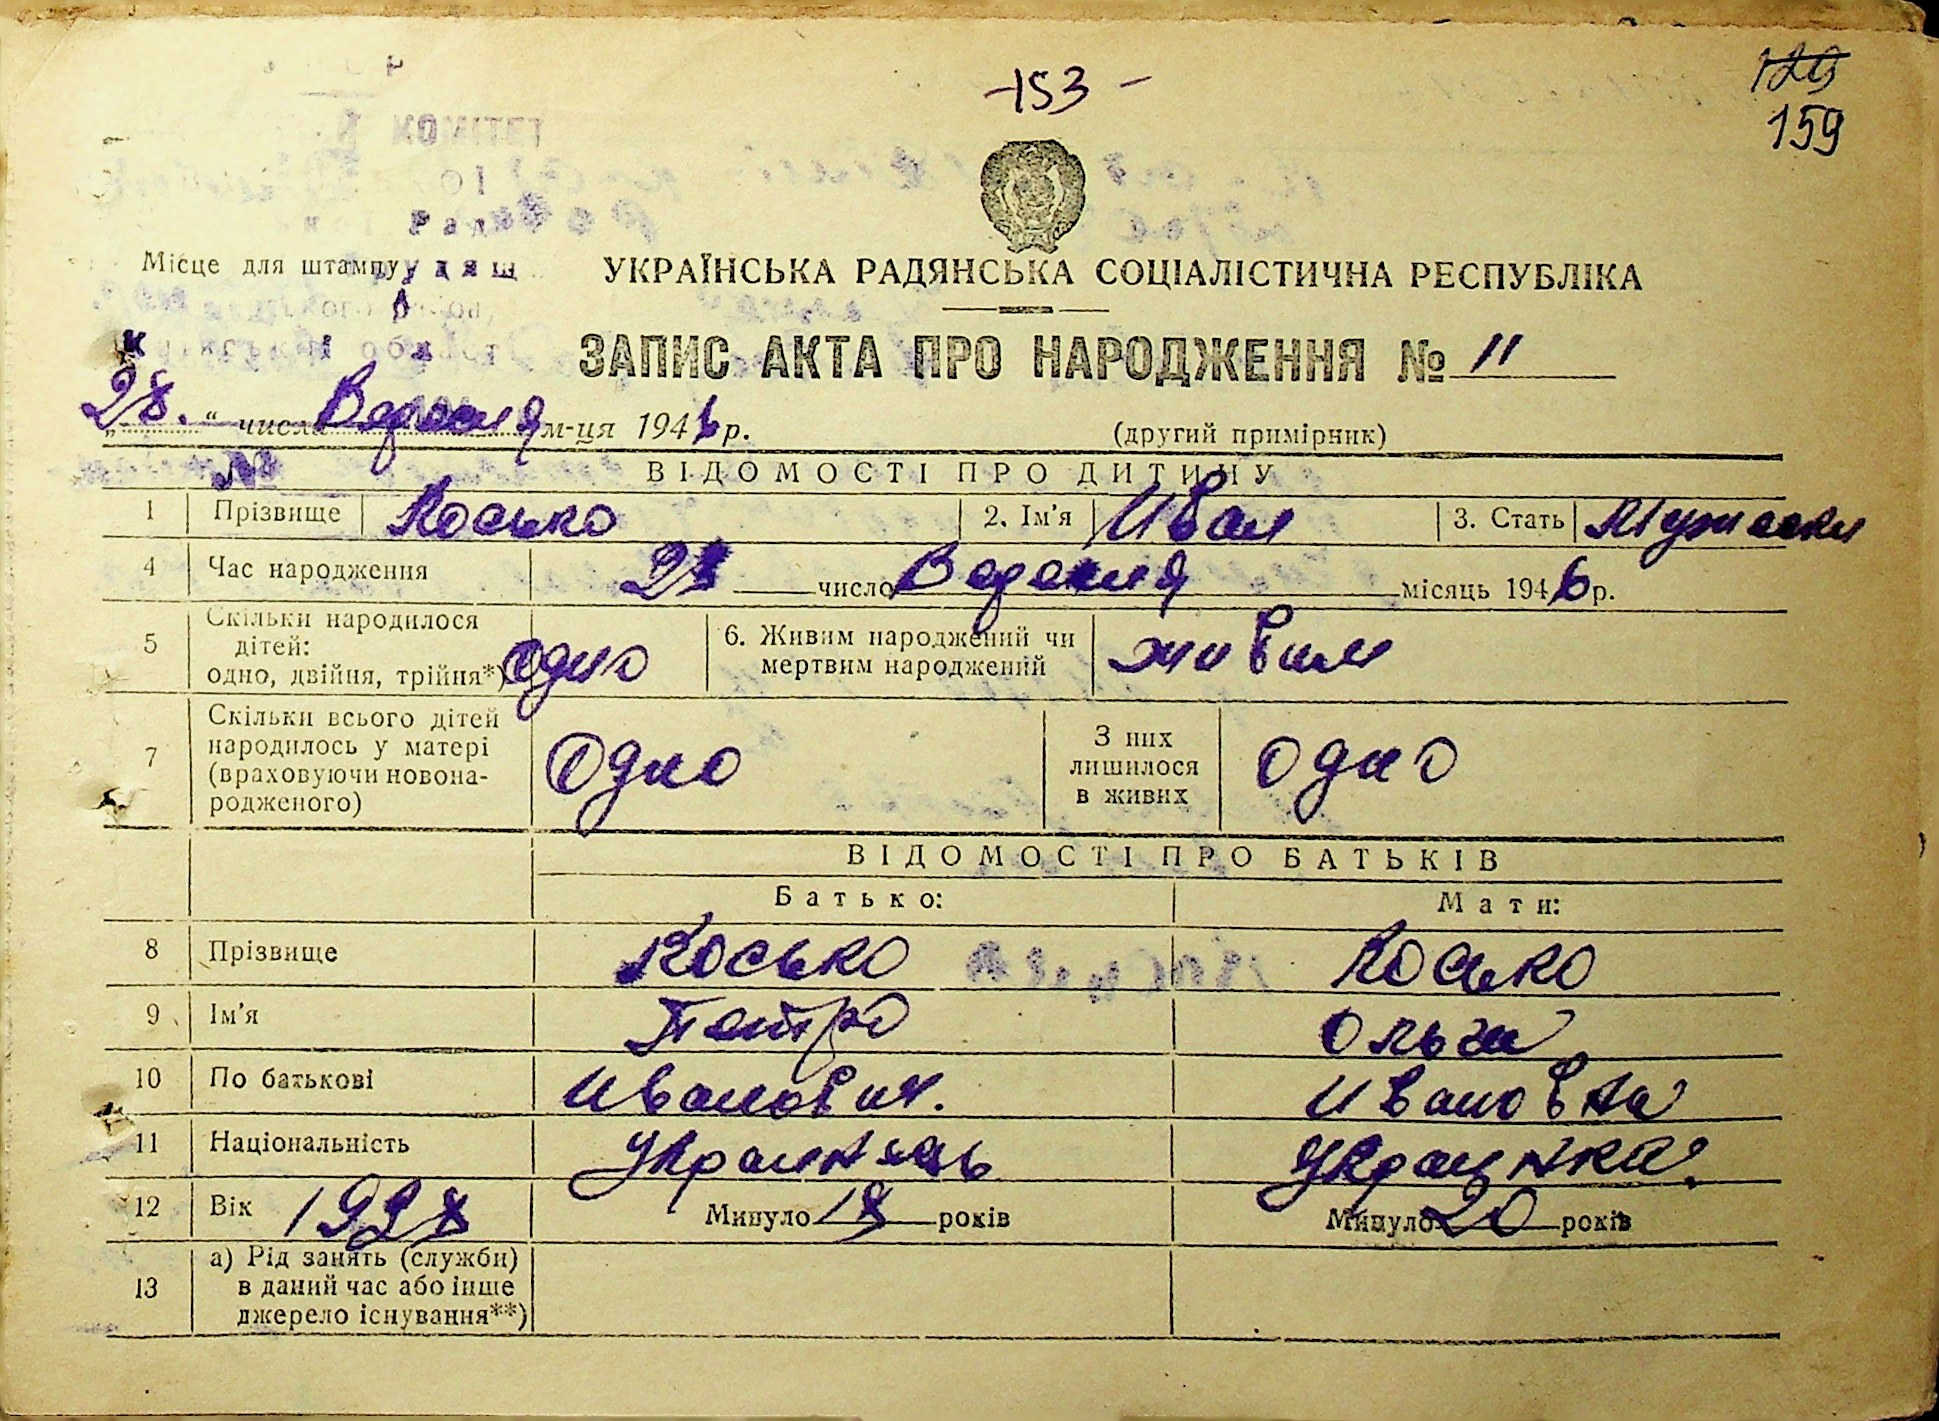 -153-
129
159
КОМІТЕТ
Місце для штампу
УКРАЇНСЬКА РАДЯНСЬКА СОЦІАЛІСТИЧНА РЕСПУБЛІКА
ЗАПИС АКТА ПРО НАРОДЖЕННЯ № 11
„28.“ числа Вересня м-ця 1946 р.
(другий примірник)
ВІДОМОСТІ ПРО ДИТИНУ
1 Прізвище Косько 2. Ім'я Иван 3. Стать
4 Час народження число Вересня місяць 1946 р.
5 Скільки народилося дітей: одно, двійня, трійня*) одно 6. Живим народжений чи мертвим народжений живим
7 Скільки всього дітей народилось у матері (враховуючи новонародженого) Одно З них лишилося в живих одно
ВІДОМОСТІ ПРО БАТЬКІВ
Батько: Мати:
8 Прізвище Косько Косько
9 Ім'я Петро Ольга
10 По батькові Иванович. Ивановна
11 Національність Украинець Украинка
12 Вік 1928 Минуло 18 років Минуло 20 років
13 а) Рід занять (служби) в даний час або інше джерело існування**)